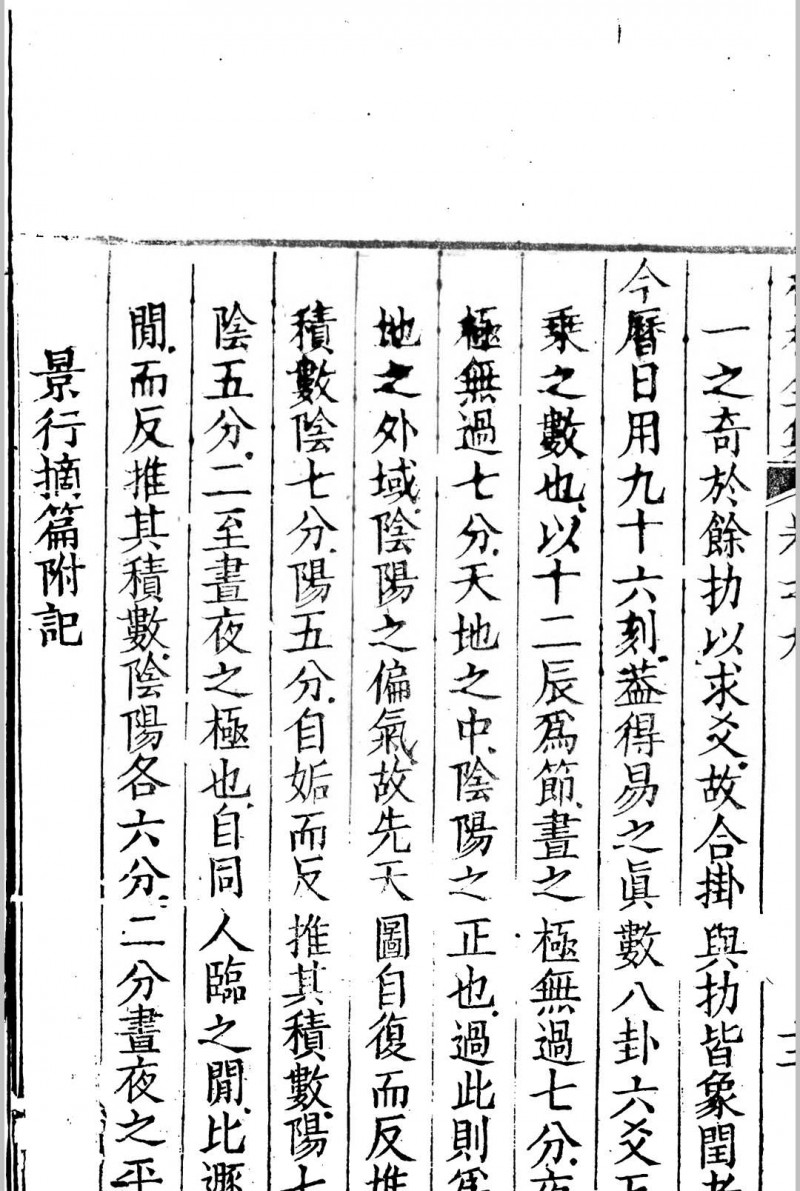 一之奇於餘扐以求爻故合掛與扐皆象閏
今曆日用九十六刻葢得易之眞數八卦六爻
乘之數也以十二辰爲節晝之極無過七分夜
極無過七分天地之中陰陽之正也過此則爲
地之外域陰陽之偏氣故先天圖自復而反推
積數陰七分陽五分自姤而反推其積數陽七
陰五分二至晝夜之極也自同人臨之閒比遯
閒而反推其積數陰陽各六分二分晝夜之平
景行摘篇附記